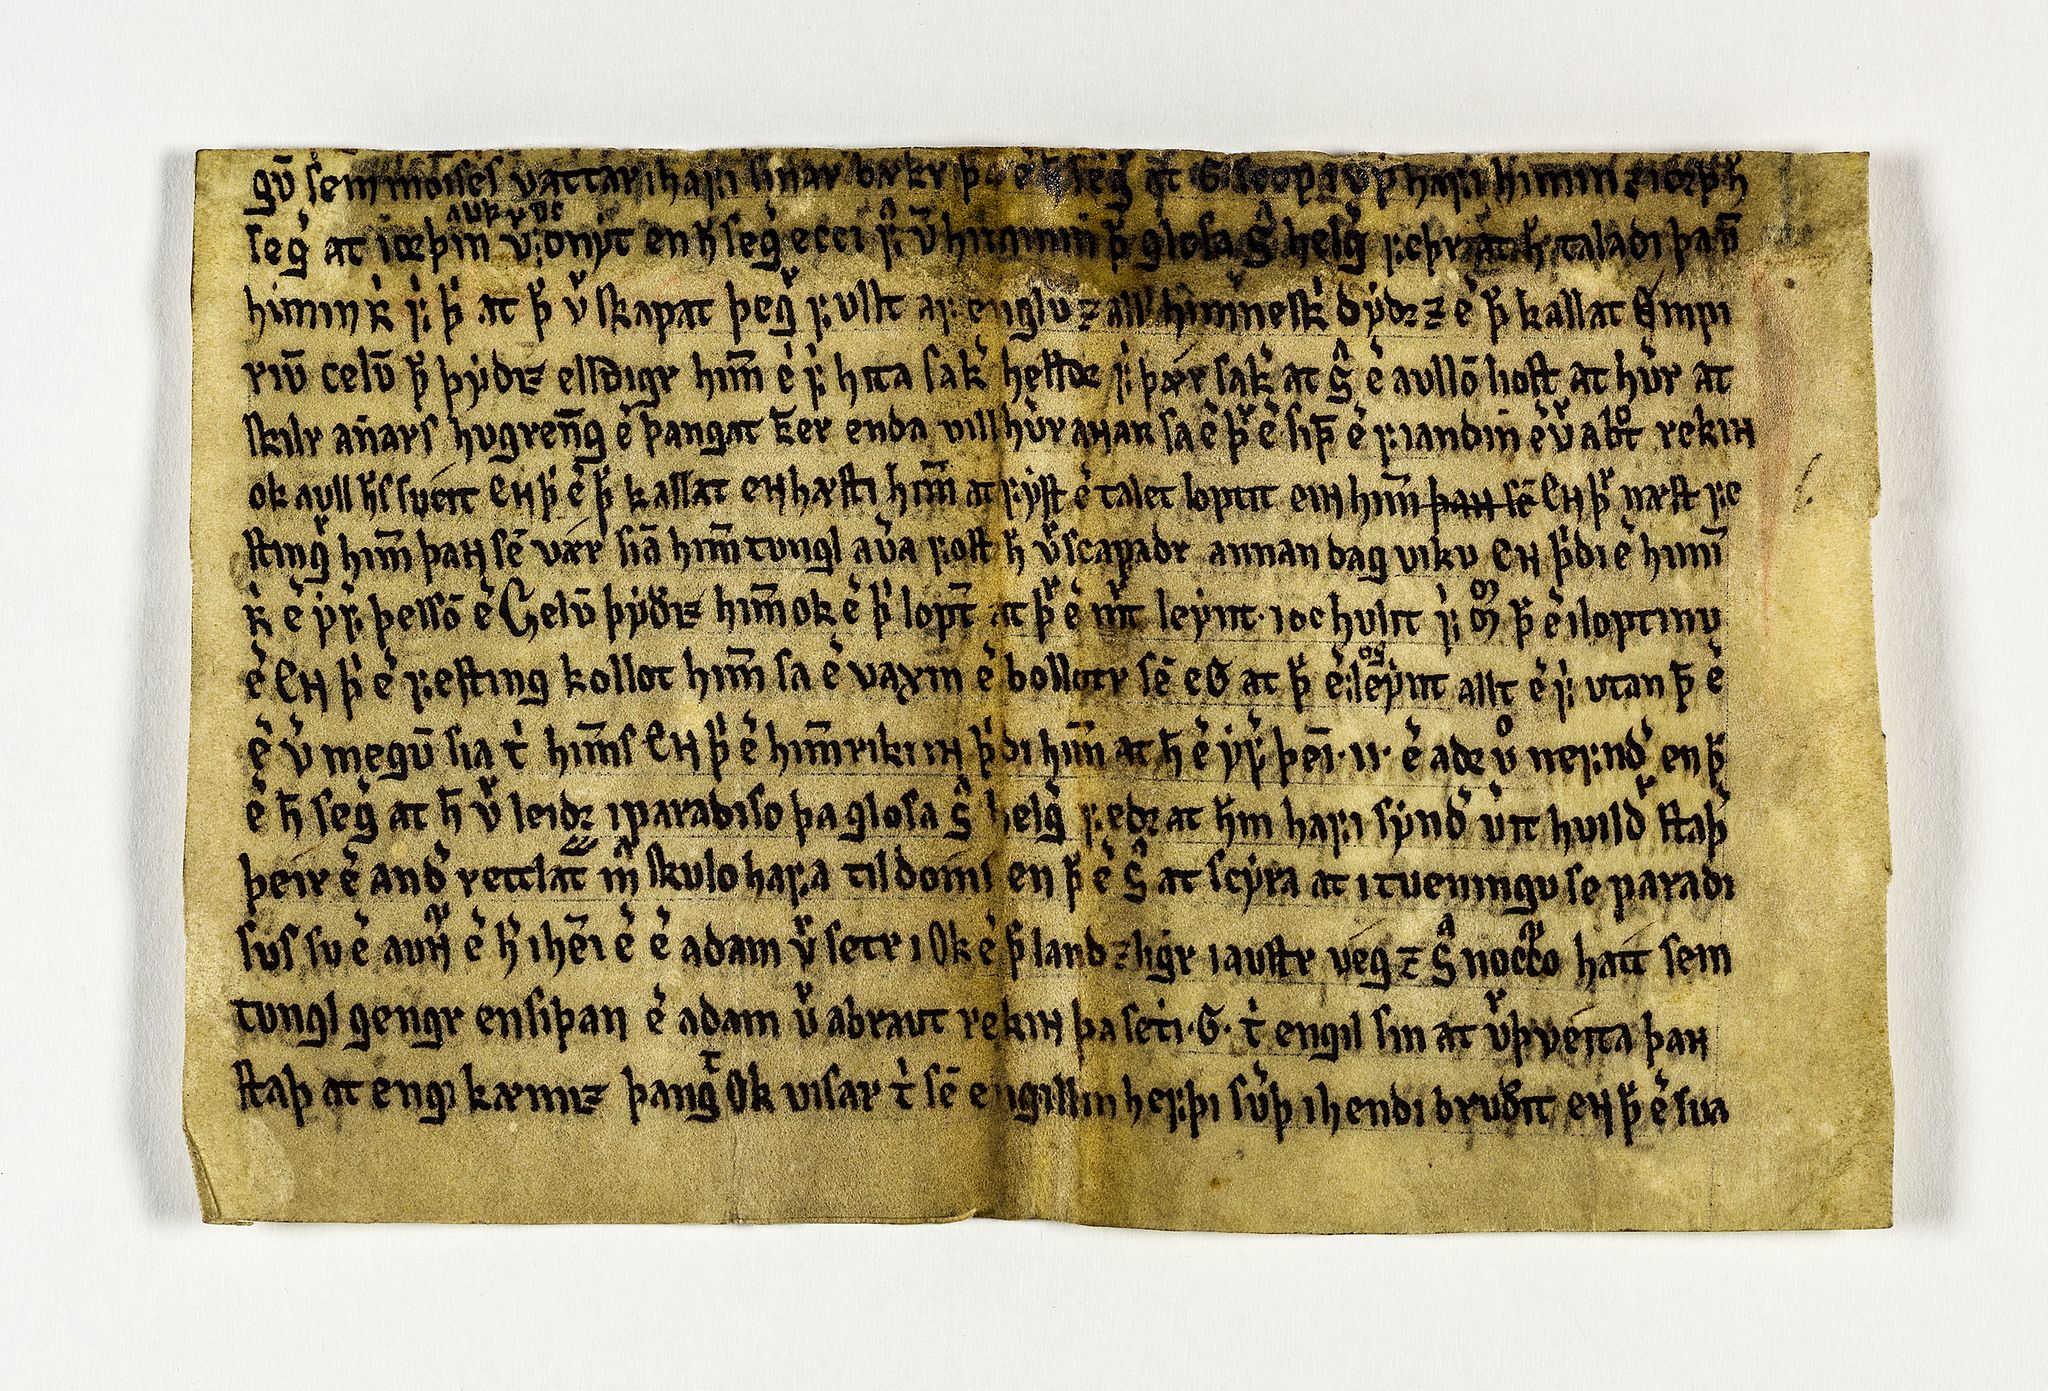 gū sem moises váttar i haꝼi sinar bækr þ̄ e h̄ segͥ at G scop i vphaꝼi himin ⁊ iorþ h̄
segͥ at iorþin v̄ ꝼ onýt en h̄ segͥ ecci ꝼͣ v̄ himnin þ̄ glosa S̄ helgͥ ꝼeþr at h̄ taladi þa v̄
himin kͥ ꝼͥ þͥ at þͣ v̄ skapat þegͣ ꝼullt aꝼ englū ⁊ allͥ himnesk dýrd ⁊ e þͣ kallat Empi
riū celū þͣ þýdiz elldligr him̄ e ꝼͥ hita sakͥ helldr ꝼͥ þær sakͥ at S̄ e aullō liost at hūr at
skilr an̄ars hugren̄g e þangat k̄er enda vill hūr annan sa e þͣ e siþ̄ e ꝼiandin e v̄ a bͦt rekinn
ok aull h̄s sueit En þͣ e þͣ kallat en hæsti him̄ at ꝼýst e talet loptit ein him̄ En þͣ næst ꝼe
stingͣ him̄ þan sē vær siā him̄tungl aūa ꝼost h̄ v̄ scapadr annan dag viku En þͥdi e himī
kͥ e ýꝼͥ þessō e Celū þýdiz him̄ ok e þͣ lopt̄ at þͣ e m̄t leýnt · i oc hult ꝼͥ m̄ þͣ e i loptinu
e En þͣ e ꝼesting kollot him̄ sa e vaxin e bollottr sē eG at þͣ e leýnt allt e ꝼͥ utan þͣ e
e v̄ megū sia tͥ him̄s En þͣ e him̄riki in þͥdi him̄ at h̄ e ýꝼͥ þeī · ii · e adr v̄ neꝼndͥ en þͣ
e h̄ segͥ at h̄ v̄ leidr i paradiso þa glosa S̄ helgͥ ꝼedr at h̄m haꝼi sýnd v̄it huilld staþ
þeir e andͥ rettlat m̄ skulo haꝼa til doms en þͣ e S̄ at scýra at i tueningu se paradi
sus su e aunͣ e hͥ i hēi e e adam v̄ settr i Ok e þͣ land ⁊ ligr i austr veg ⁊ S̄ nocko hátt sem
tungl gengr en siþan e adam v̄ a braut rekinn þa seti · G · tͥ engil sin at v̄þveita þan
staþ at engi kæmiz þangͣt Ok visar tͥ sē engillin heꝼþi sūþ i hendi brugdit en þͣ e sua